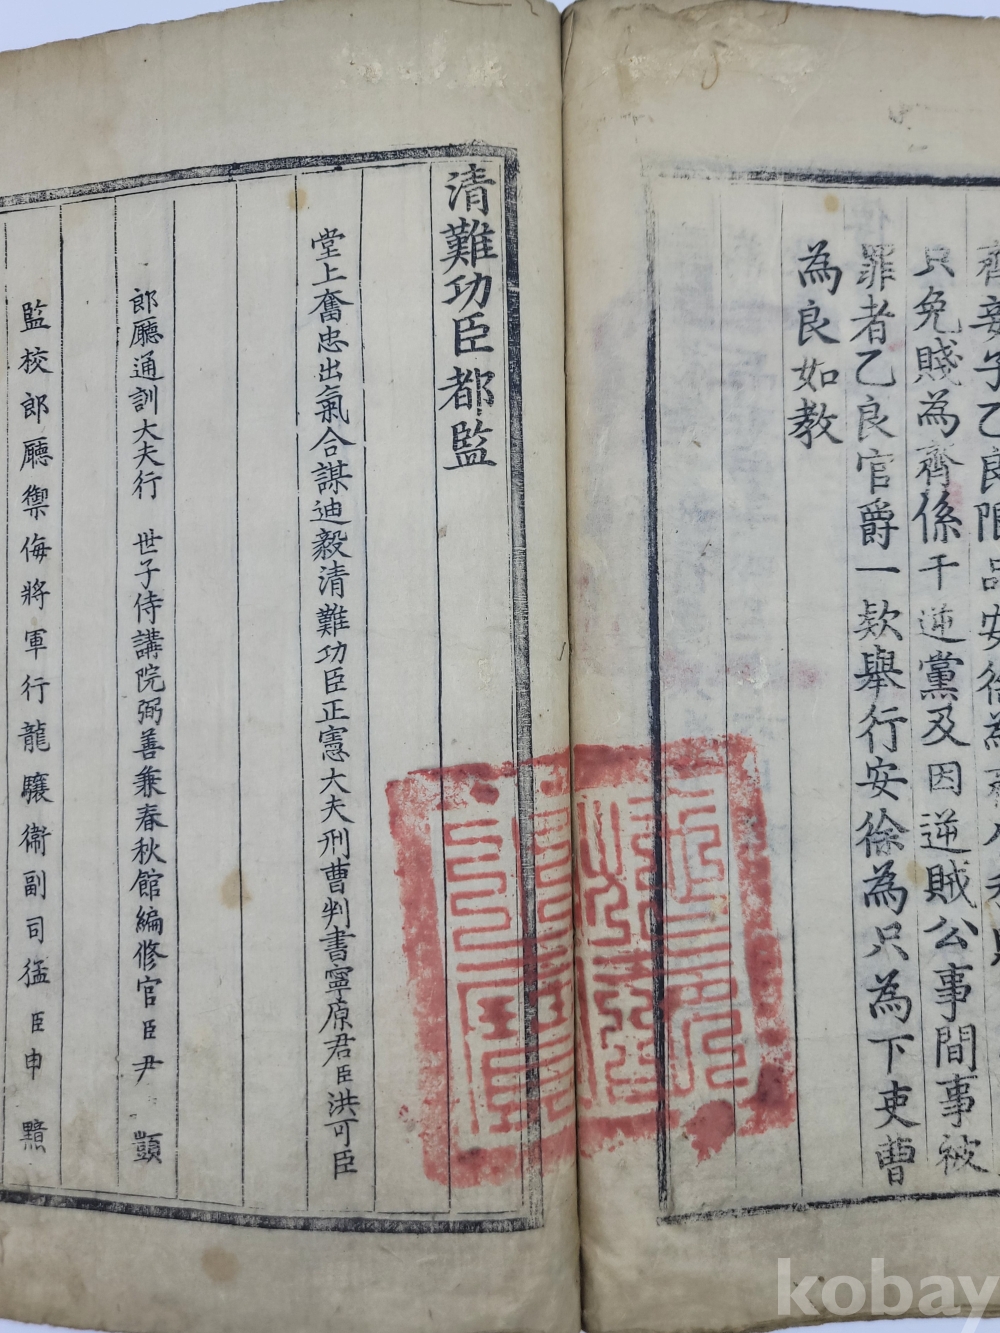 齊妾子乙良限品安徐為齊
只免賤為齊係干逆黨及因逆賊公事間事被
罪者乙良官爵一款舉行安徐為只為下吏曹
為良如教
清難功臣都監
堂上奮忠出氣合謀迪毅清難功臣正憲大夫刑曹判書寧原君臣洪可臣
郎廳通訓大夫行 世子侍講院弼善兼春秋館編修官臣尹 顗
監校郎廳禦侮將軍行龍驤衛副司猛臣申 黯
kobay